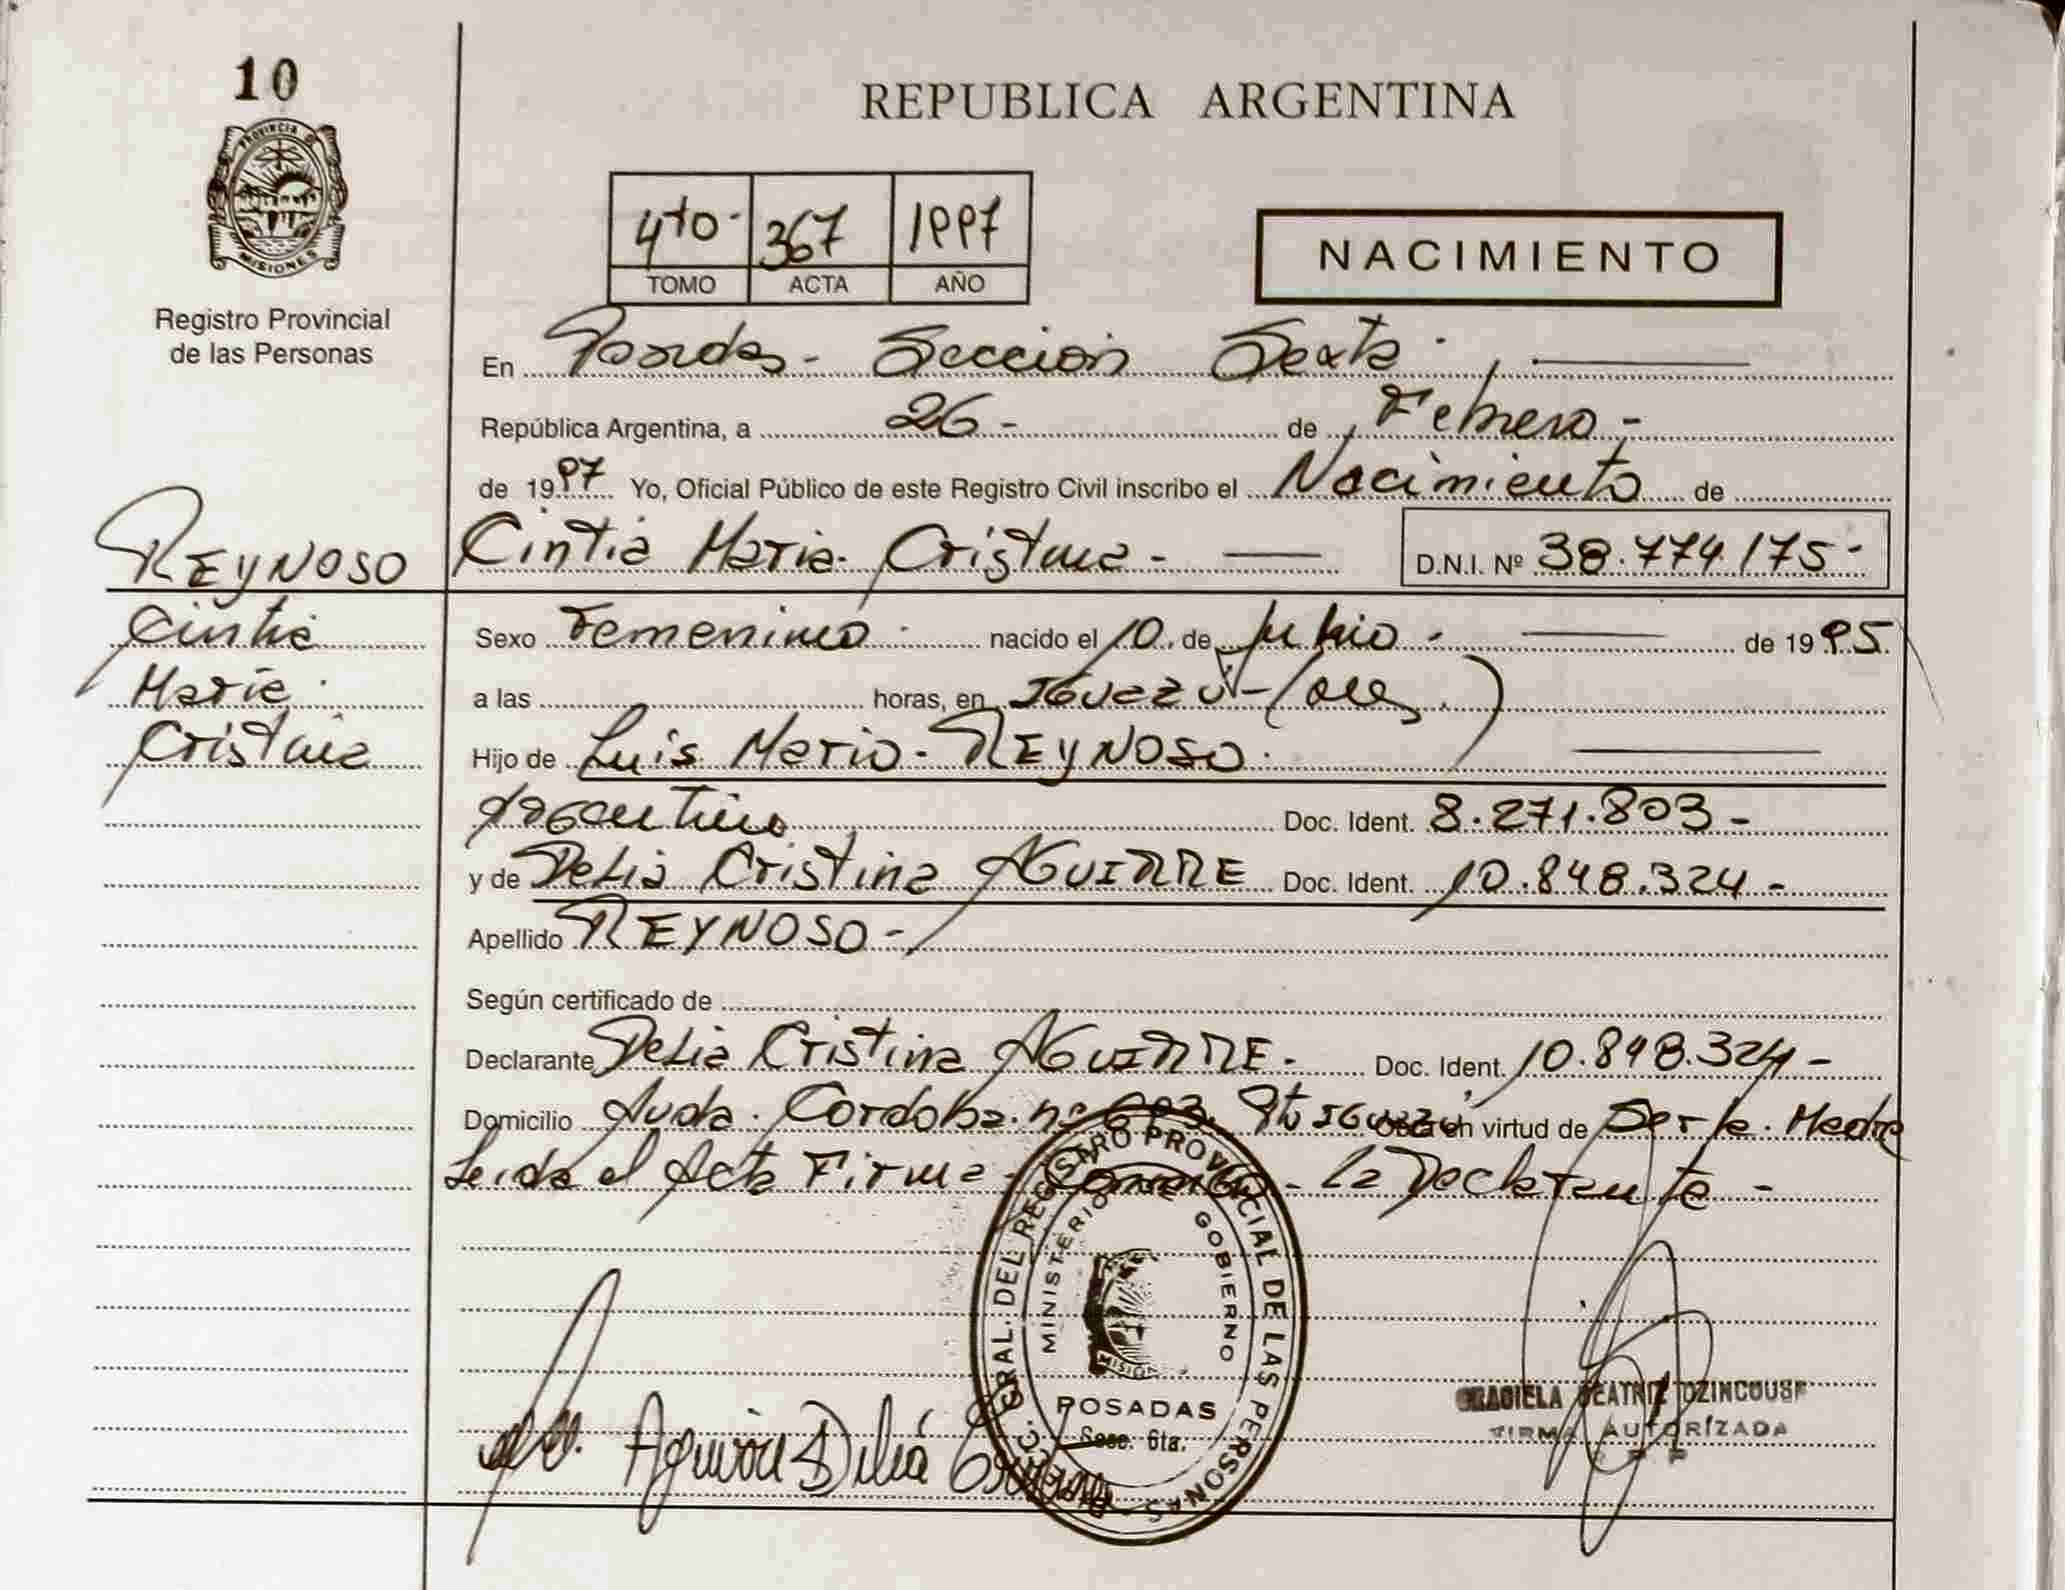 10
REPUBLICA ARGENTINA
PROVINCIA DE
MISIONES
Registro Provincial
de las Personas
4to- 367 1997
TOMO ACTA AÑO
NACIMIENTO
En Posadas - Sección Sexta.
República Argentina, a 26 - de Febrero -
de 1997 Yo, Oficial Público de este Registro Civil inscribo el Nacimiento de
REYNOSO Cintia Maria Cristina - D.N.I. Nº 38.774.175-
Cintia
Maria
Cristina
Sexo Femenino nacido el 10 de Junio - de 1995.
a las horas, en IGUAZU -
Hijo de Luis Mario - REYNOSO.
Argentino Doc. Ident. 8.271.803 -
y de Delia Cristina AGUIRRE Doc. Ident. 10.848.324 -
Apellido REYNOSO -
Según certificado de
Declarante Delia Cristina AGUIRRE - Doc. Ident. 10.848.324 -
Domicilio Avda. Cordoba nº Pto IGUAZU Obra en virtud de Ser la Madre
Leida el Acta Firma - Conmigo - la Declarante -
GRAL. DEL REGISTRO PROVINCIAL DE LAS PERSONAS
MINISTERIO GOBIERNO
POSADAS
Secc. 6ta.
Aguirre Delia
GRACIELA BEATRIZ
FIRMA AUTORIZADA